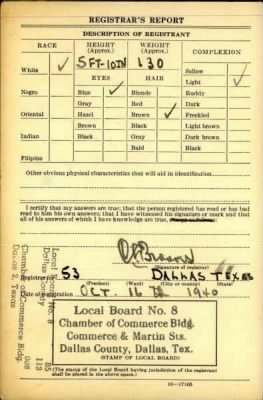 REGISTRAR'S REPORT
DESCRIPTION OF REGISTRANT
RACE HEIGHT (Approx.) WEIGHT (Approx.) COMPLEXION
White ✓ 5FT-10IN 130 Sallow
EYES HAIR Light ✓
Negro Blue ✓ Blonde Ruddy
Gray Red Dark
Oriental Hazel Brown ✓ Freckled
Brown Black Light brown
Indian Black Gray Dark brown
Bald Black
Filipino
Other obvious physical characteristics that will aid in identification
I certify that my answers are true; that the person registered has read or has had
read to him his own answers; that I have witnessed his signature or mark and that
all of his answers of which I have knowledge are true,
(Signature of registrar)
Registrar for 53 DALLAS TEXAS
(Precinct) (Ward) (City or county) (State)
Date of registration OCT. 16 1940
Local Board No. 8
Chamber of Commerce Bldg.
Commerce & Martin Sts.
Dallas County, Dallas, Tex.
(STAMP OF LOCAL BOARD)
(The stamp of the Local Board having jurisdiction of the registrant shall be placed in the above space.)
Local Board No. 8
Chamber of Commerce Bldg.
Dallas 2, Texas
16—17105